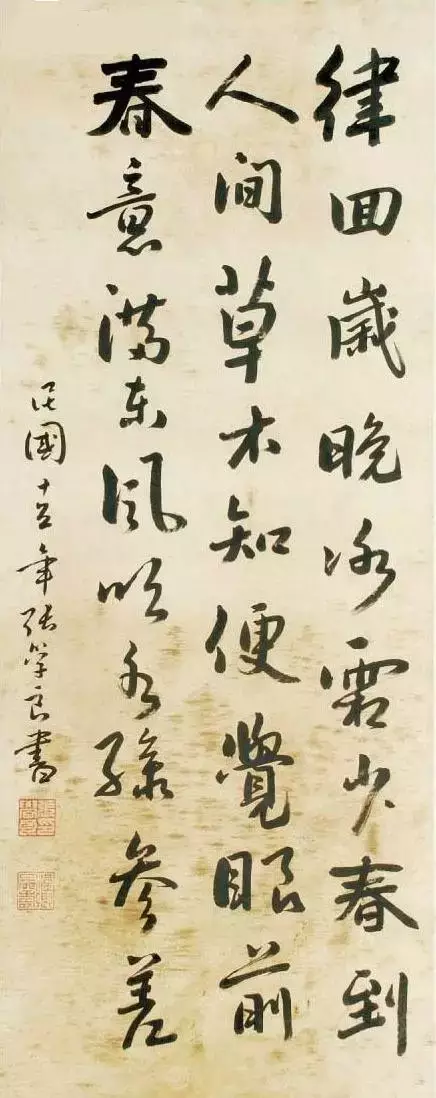 律回歲晚冰霜少春到
人间草木知便覺眼前
春意滿東風吹水綠參差
民國十五年張學良書